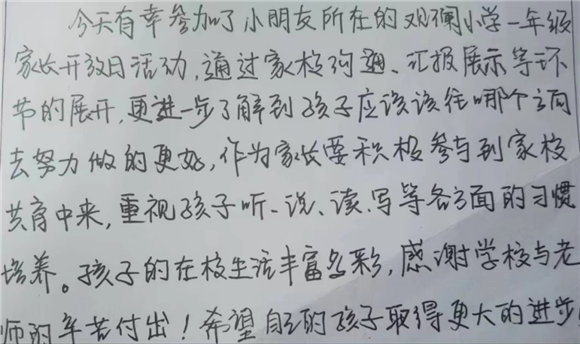 今天有幸参加了小朋友所在的观澜小学一年级
家长开放日活动,通过家校沟通、汇报展示等环
节的展开,更进一步了解到孩子应该该往哪个方向
去努力做的更好,作为家长要积极参与到家校
共育中来,重视孩子听、说、读、写等各方面的习惯
培养。孩子的在校生活丰富多彩,感谢学校与老
师的辛苦付出!希望自己的孩子取得更大的进步!